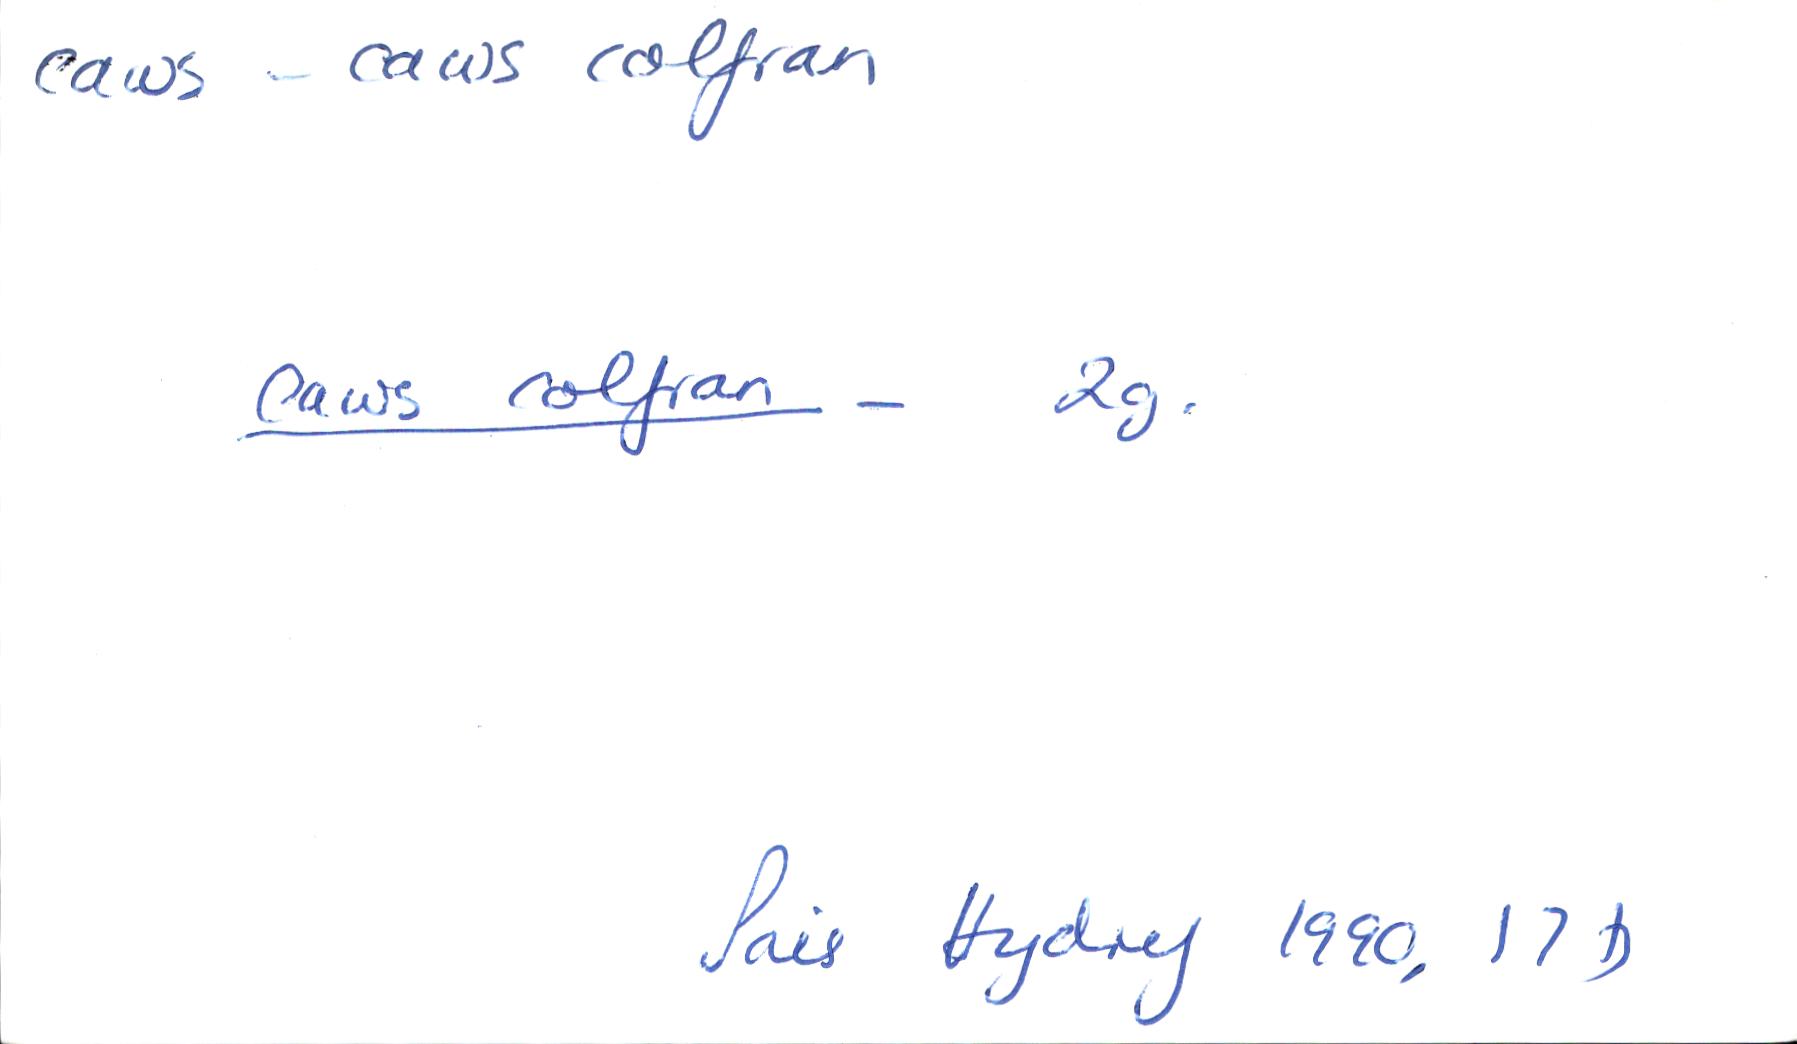 caws - caws colfran
caws colfran - 2g.
Llais Hydref 1990, 17